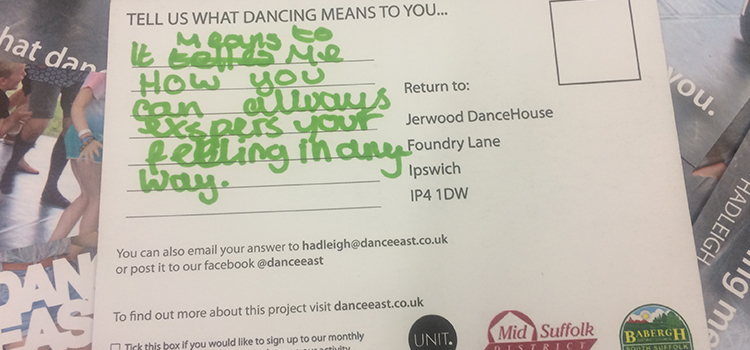 TELL US WHAT DANCING MEANS TO YOU...
Means to
It tells Me
How you
can always
exspers your
feeling in any
way.
Return to:
Jerwood DanceHouse
Foundry Lane
Ipswich
IP4 1DW
You can also email your answer to hadleigh@danceeast.co.uk
or post it to our facebook @danceeast
To find out more about this project visit danceeast.co.uk
Tick this box if you would like to sign up to our monthly
UNIT.
Mid Suffolk
DISTRICT
BABERGH
SOUTH SUFFOLK
hat dan
DAN
EAS
you.
HADLEIGH